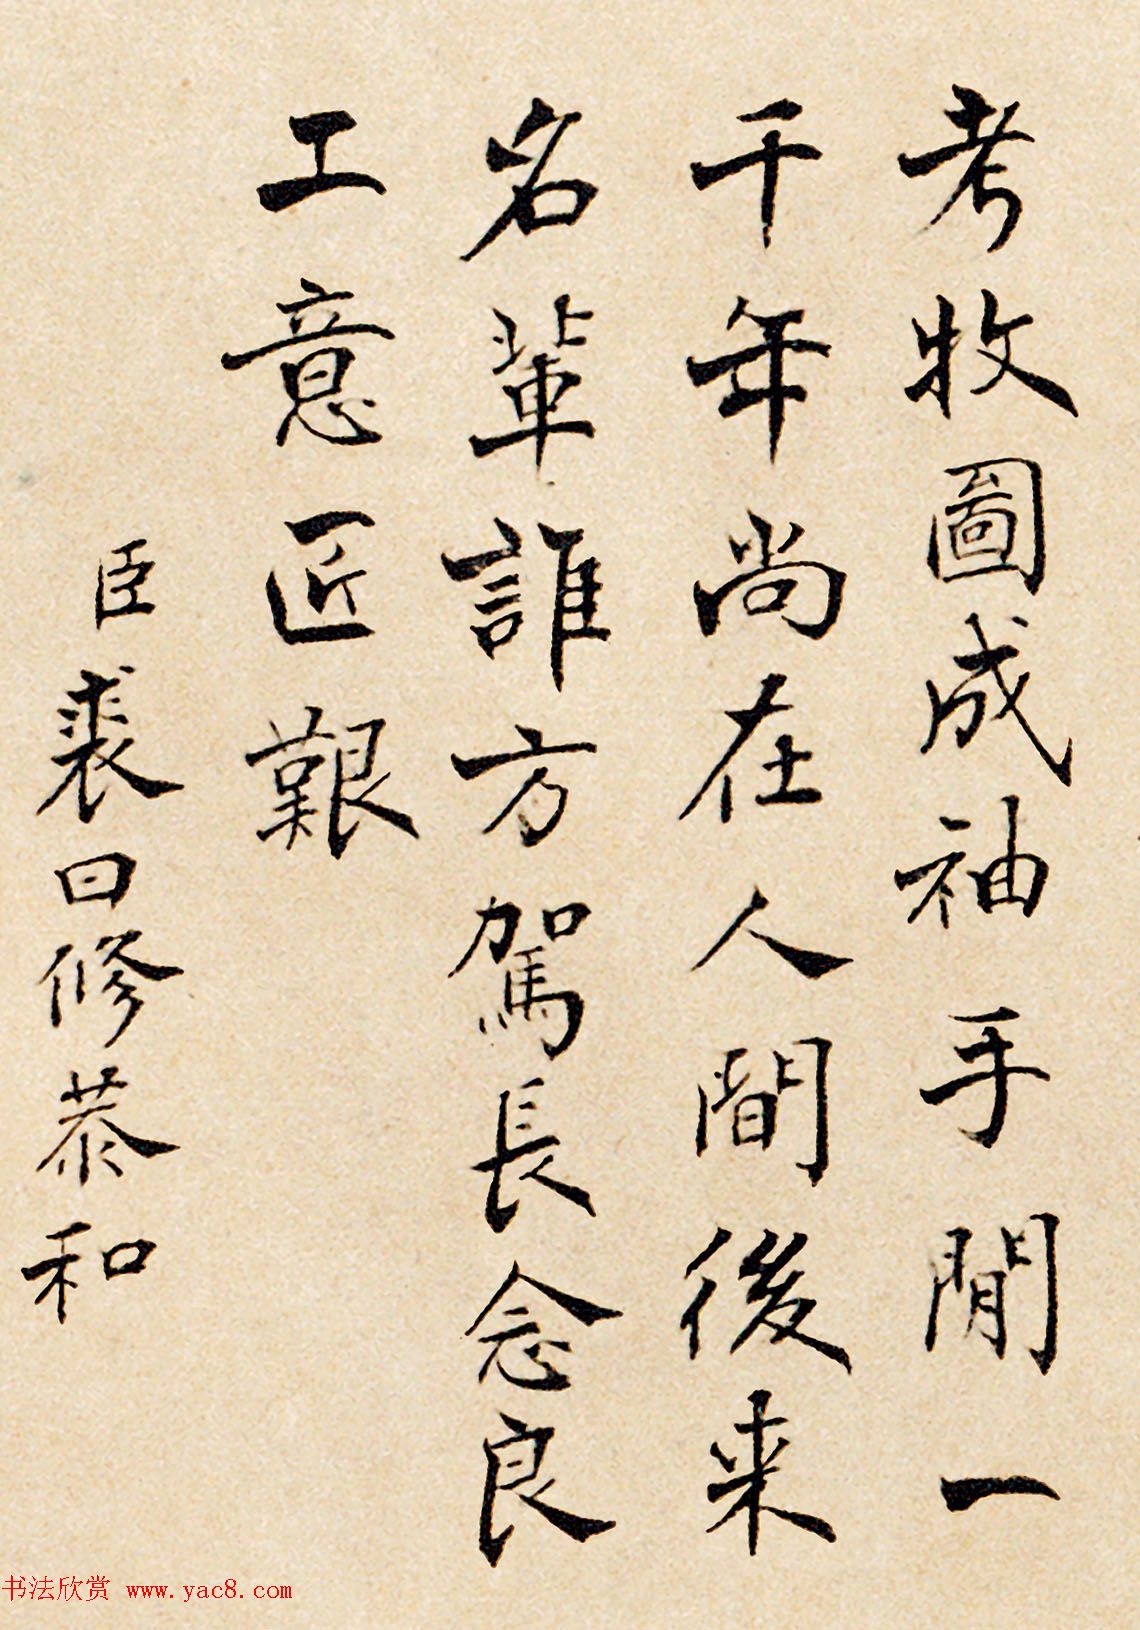 考牧圖成袖手閒一
千年尚在人間後来
名輩誰方駕長念良
工意匠艱
臣裘曰修恭和
书法欣赏 www.yac8.com